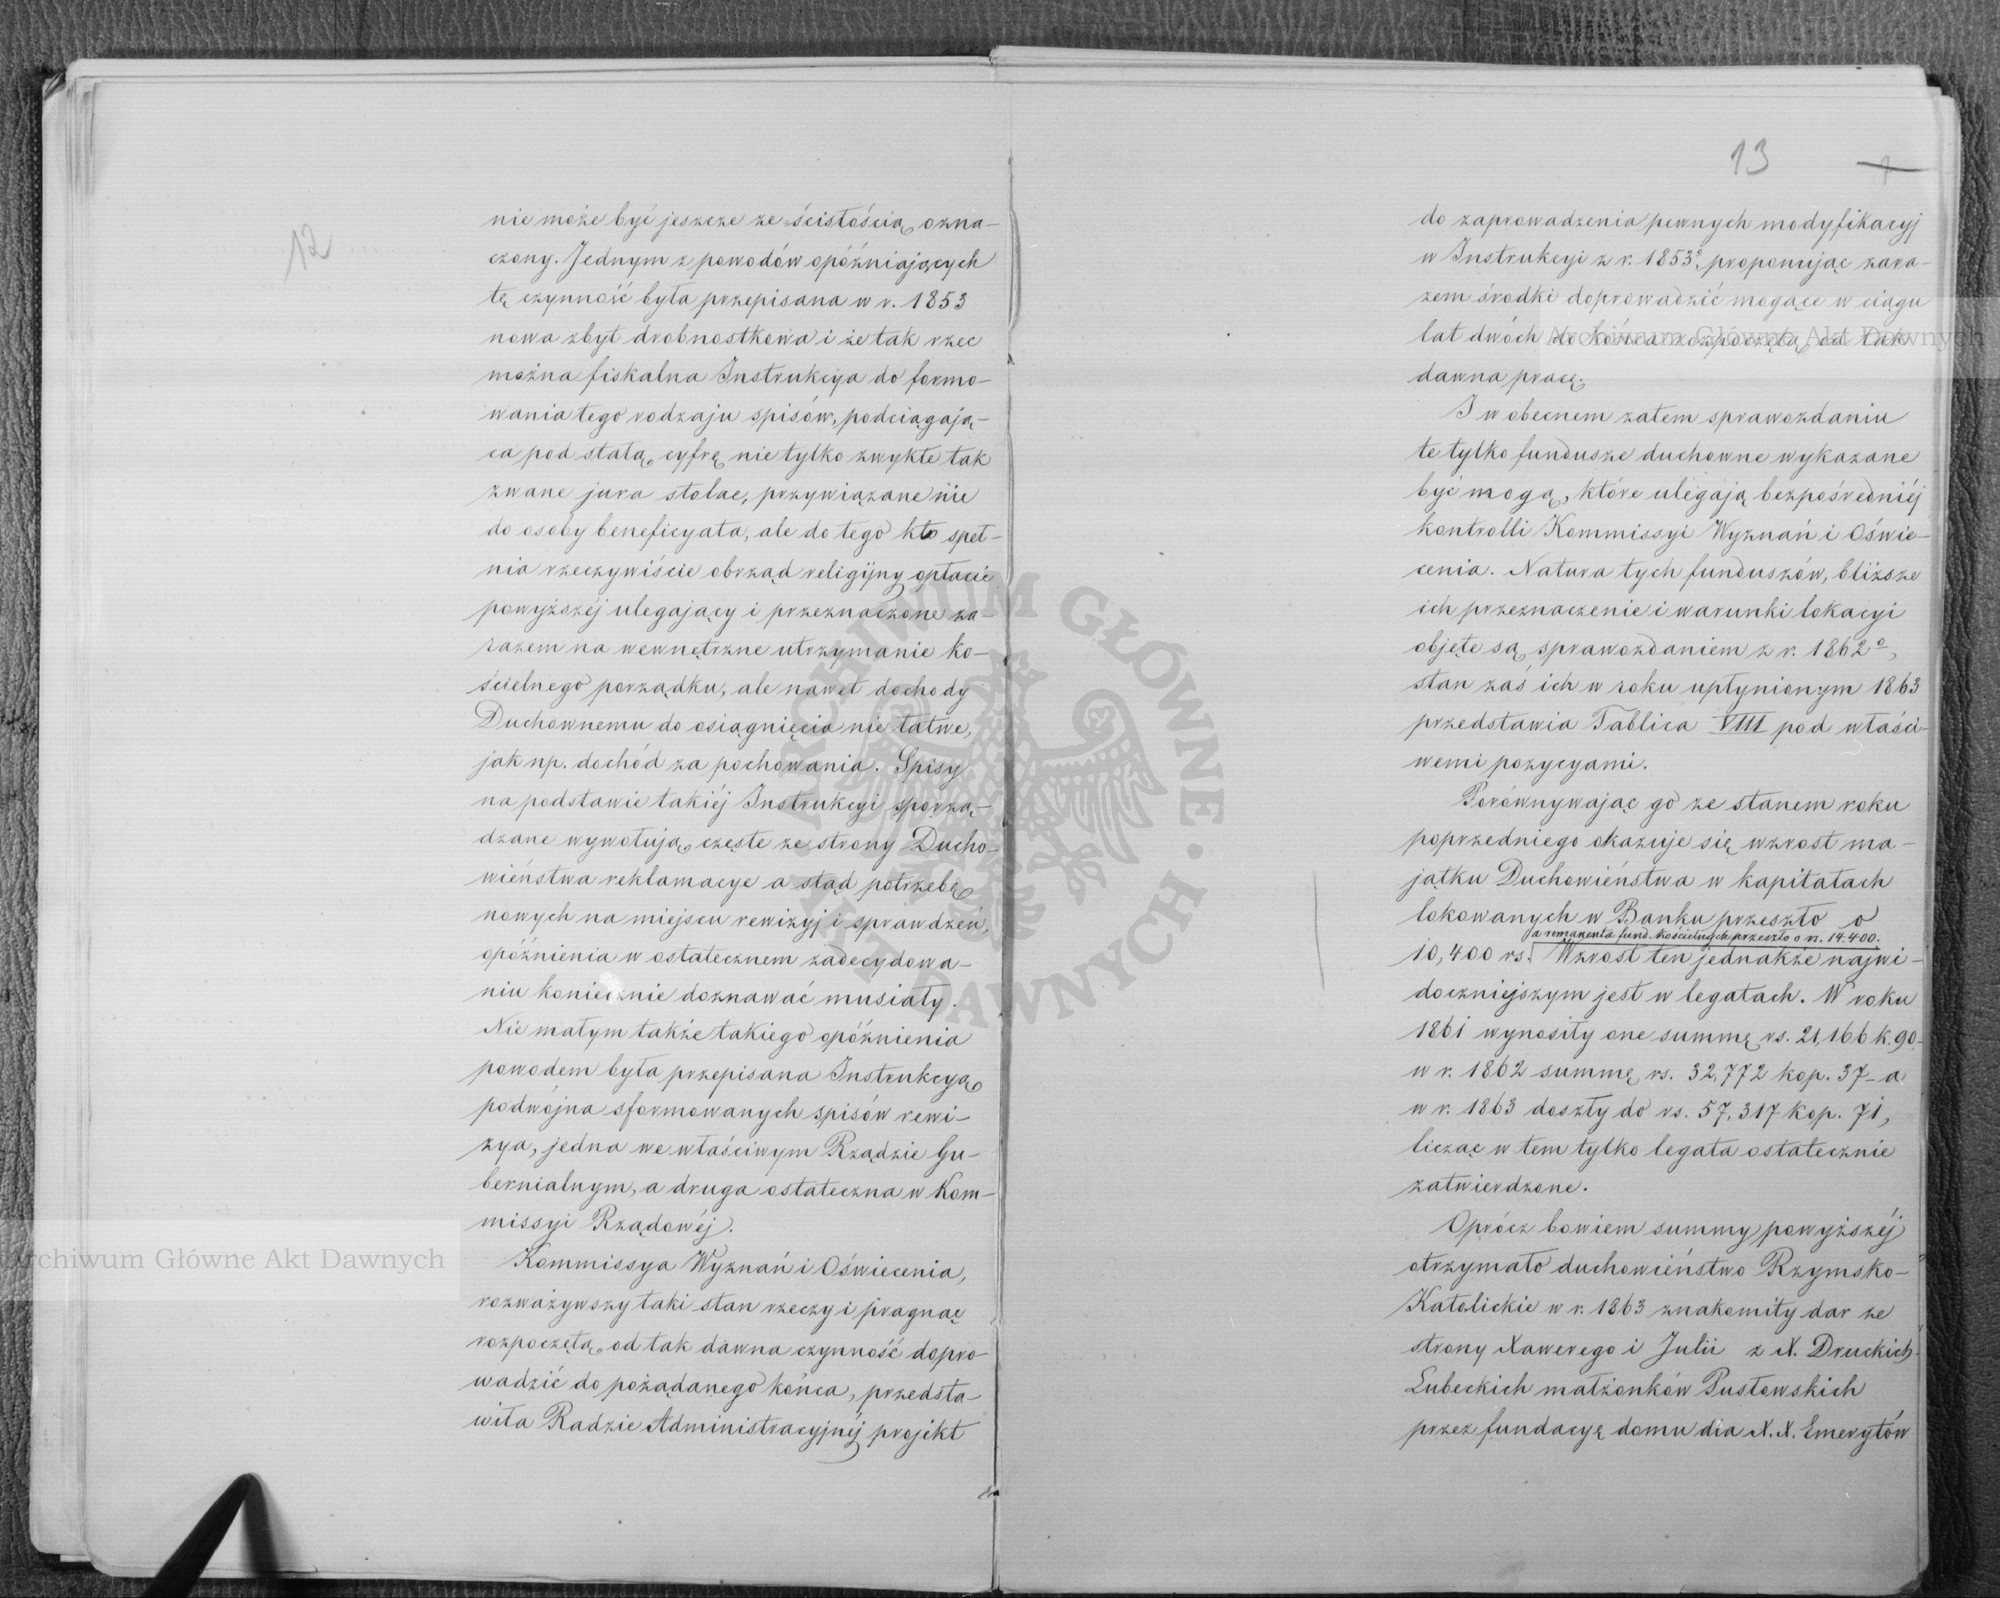 12
nie może być jeszcze ze ścisłością ozna-
czony. Jednym z powodów opóźniających
tę czynność była przepisana w r. 1853
nowa zbyt drobnostkowa i że tak rzec
można fiskalna Instrukcya do formo-
wania tego rodzaju spisów, podciągają-
ca pod stałą cyfrę nie tylko zwykłe tak
zwane jura stolae, przywiązane nie
do osoby beneficyata, ale do tego kto speł-
nia rzeczywiście obrząd religijny opłacie
powyższéj ulegający i przeznaczone za-
razem na wewnętrzne utrzymanie ko-
ścielnego porządku, ale nawet dochody
Duchownemu do osiągnięcia nie łatwe,
jak np. dochód za pochowania. Spisy
na podstawie takiéj Instrukcyi sporzą-
dzane wywołują częste ze strony Ducho-
wieństwa reklamacye a stąd potrzebą
nowych na miejscu rewizyj i sprawdzeń,
opóźnienia w ostatecznem zadecydowa-
niu koniecznie doznawać musiały.
Nie małym także takiego opóźnienia
powodem była przepisana Instrukcyą
podwójna sformowanych spisów rewi-
zya, jedna we właściwym Rządzie Gu-
bernialnym, a druga ostateczna w Kom-
missyi Rządowéj.
Kommissya Wyznań i Oświecenia,
rozważywszy taki stan rzeczy i pragnąc
rozpoczętą od tak dawna czynność dopro-
wadzić do pożądanego końca, przedsta-
wiła Radzie Administracyjnéj projekt
13
do zaprowadzenia pewnych modyfikacyj
w Instrukcyi z r. 1853º, proponując zara-
zem środki doprowadzić mogące w ciągu
lat dwóch do końca rozpoczętą od tak
dawna pracę.
I w obecnem zatem sprawozdaniu
te tylko fundusze duchowne wykazane
być mogą, które ulegają bezpośredniéj
kontrolli Kommissyi Wyznań i Oświe-
cenia. Natura tych funduszów, bliższe
ich przeznaczenie i warunki lokacyi
objęte są sprawozdaniem z r. 1862º,
stan zaś ich w roku upłynionym 1863
przedstawia Tablica VIII pod właści-
wemi pozycyami.
Porównywając go ze stanem roku
poprzedniego okazuje się wzrost ma-
jątku Duchowieństwa w kapitałach
lokowanych w Banku przeszło o
a remanenta fund. kościelnych przeszło o rs. 14.400.
10,400 rs. Wzrost ten jednakże najwi-
doczniejszym jest w legatach. W roku
1861 wynosiły one summę rs. 21,166 k. 90.
w r. 1862 summę rs. 32,772 kop. 37 - a
w r. 1863 doszły do rs. 57,317 kop. 71,
licząc w tem tylko legata ostatecznie
zatwierdzone.
Oprócz bowiem summy powyższéj
otrzymało duchowieństwo Rzymsko-
Katolickie w r. 1863 znakomity dar ze
strony Xawerego i Julii z X. Druckich
Lubeckich małżonków Pusłowskich
przez fundacyę domu dla X. X. Emerytów
Archiwum Główne Akt Dawnych
Archiwum Główne Akt Dawnych
ARCHIWUM GŁÓWNE · AKT DAWNYCH ·